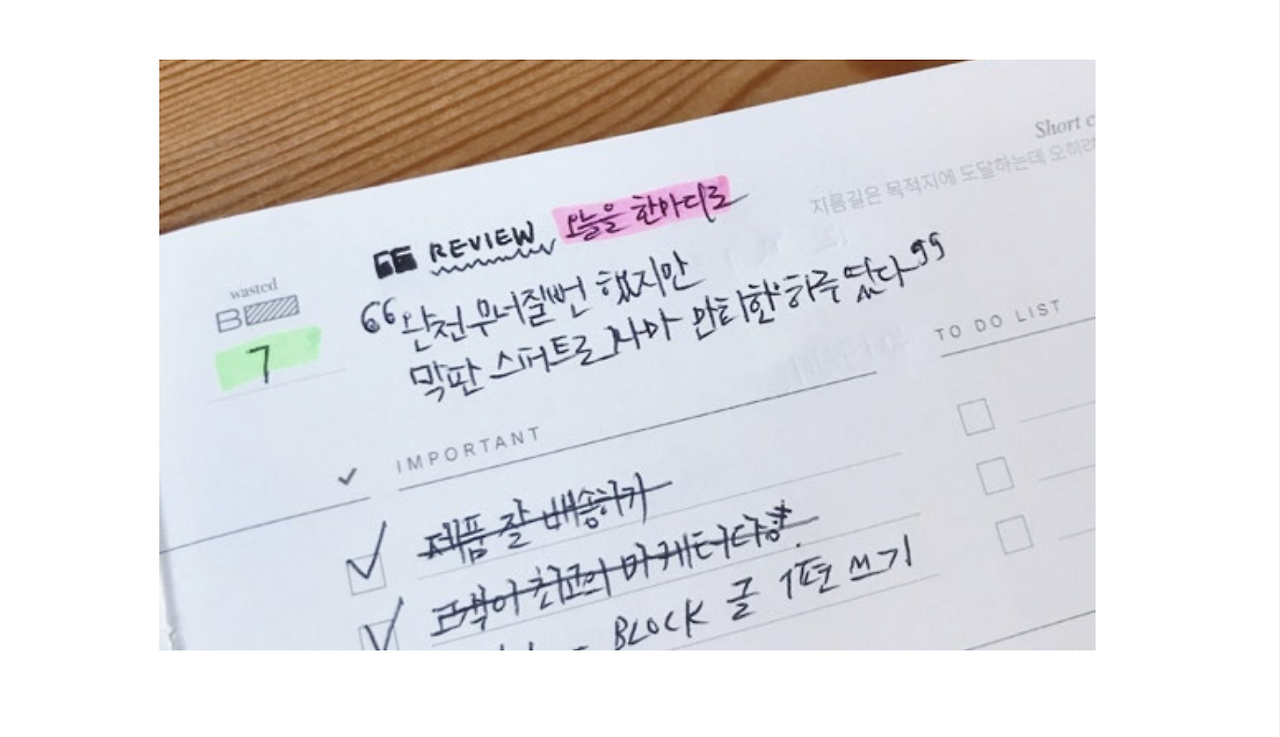 Short c
지름길은 목적지에 도달하는데 오히려
REVIEW 오늘을 한마디로
wasted
B
7
“완전 무너질뻔 했지만
막판 스퍼트로 나마 만티한 하루 땄다”
TO DO LIST
IMPORTANT
제품 잘 배송하기
고객이 최고의 마케터다!
BLOCK 글 1편 쓰기